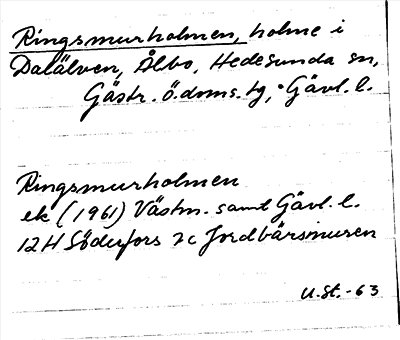 Ringsmurholmen, holme i
Dalälven, Ålbo, Hedesunda sn,
Gästr. ö. doms. tg, Gävl. l.
Ringsmurholmen
ek (1961) Västm. samt Gävl. l.
12H Söderfors 7c Jordbärsmuren
U.St. -63